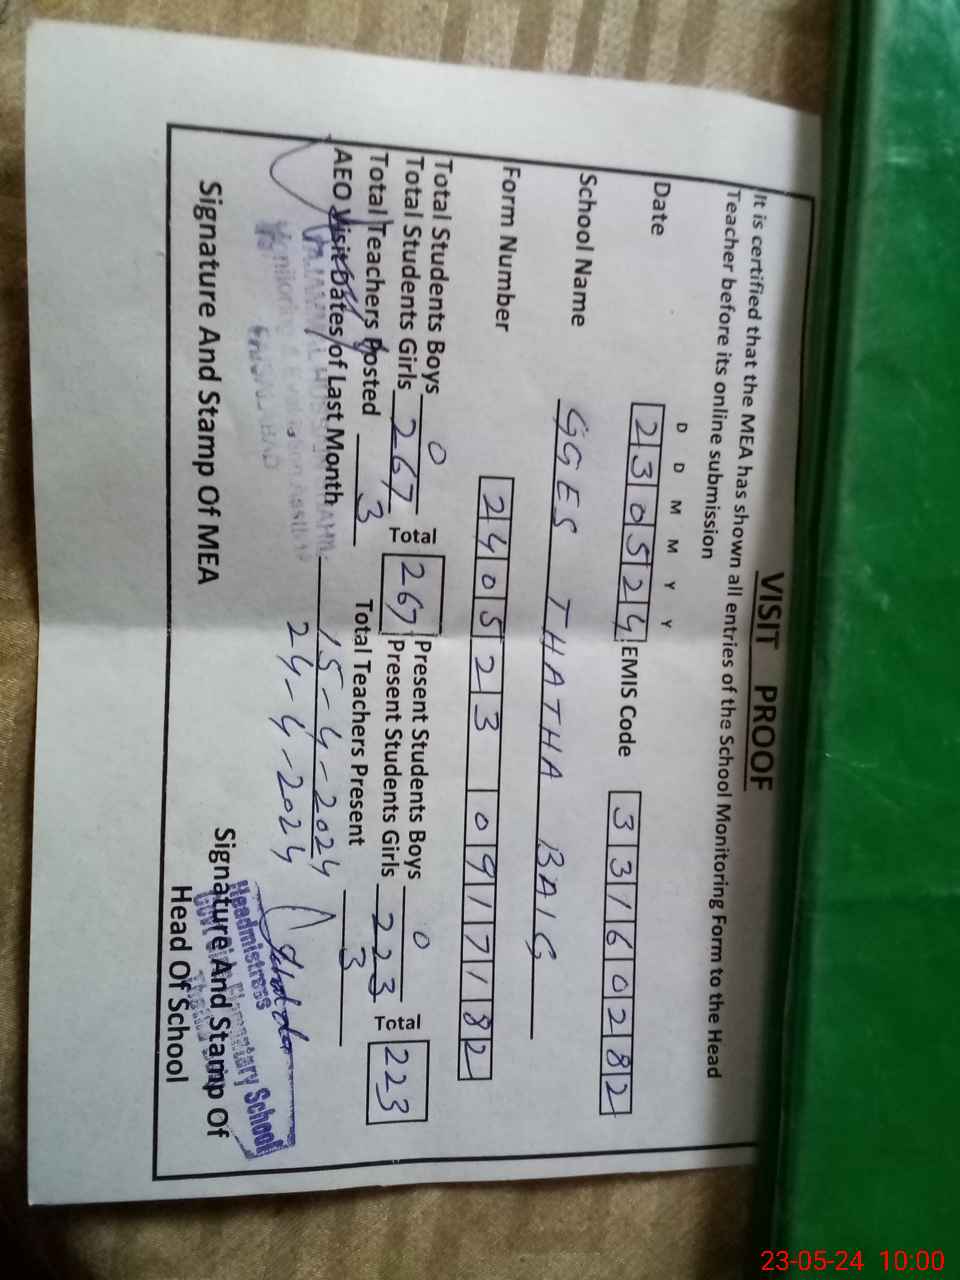 VISIT PROOF
It is certified that the MEA has shown all entries of the School Monitoring Form to the Head
Teacher before its online submission
D D M M Y Y
Date 230524 EMIS Code 33160282
School Name GGES THATHA BAIG
Form Number 240523 0917182
Total Students Boys 0 Present Students Boys 0
Total Students Girls 267 Total 267 Present Students Girls 223 Total 223
Total Teachers Posted 3 Total Teachers Present 3
AEO Visit Dates of Last Month 15-4-2024
24-4-2024
Headmistress
Elementary School
Signature And Stamp Of MEA
Signature And Stamp Of
Head Of School
23-05-24 10:00